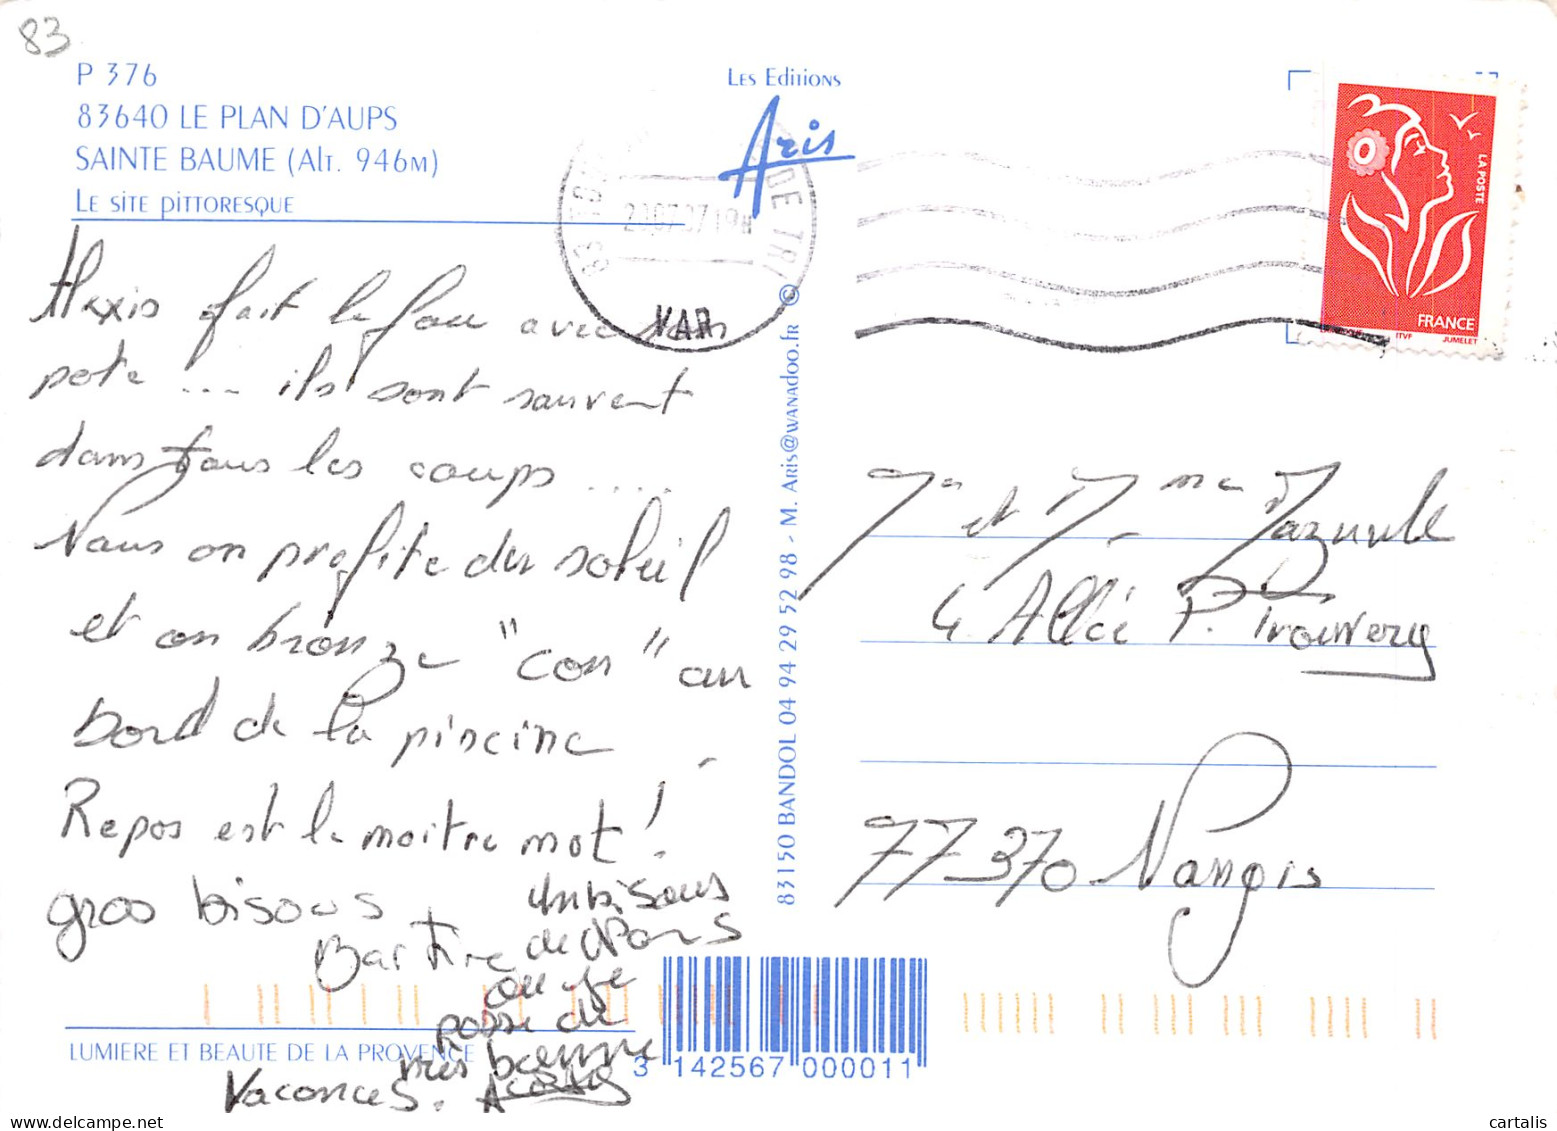 83
P 376
83640 LE PLAN D'AUPS
SAINTE BAUME (Alt. 946m)
Le site pittoresque
Les Editions
Aris
20.07.07 19H
83
DE TRI
VAR
LA POSTE
FRANCE
ITVF JUMELET
Alexis fait le fou avec son
pote ... ils sont souvent
dans tous les coups .....
Nous on profite du soleil
et on bronze "con" au
bord de la piscine.
Repos est le maitre mot!
gros bisous
un bisous
de Mons
ou je
passe de
très bonne
Vacances.
83150 BANDOL 04 94 29 52 98 - M. Aris@wanadoo.fr ©
Mr et Mme
4 Allée P.
77370 Nangis
LUMIERE ET BEAUTE DE LA PROVENCE
3 142567 000011
cartalis